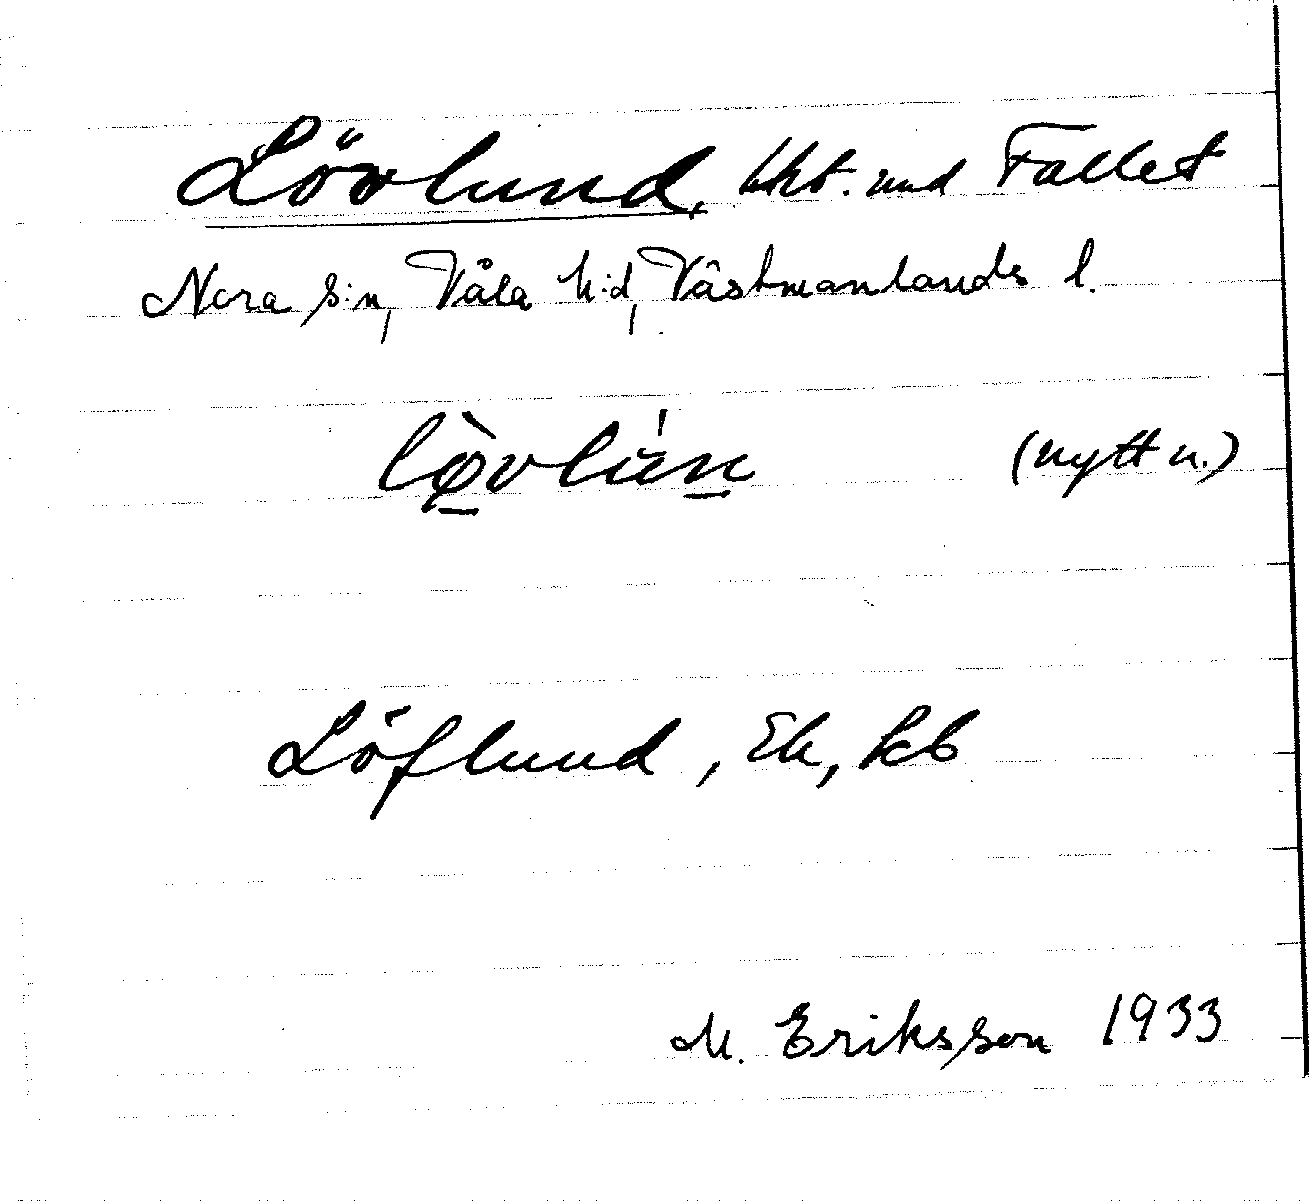 Lövlund, lht. und Fallet
Nora s:n, Våla h:d, Västmanlands l.
lø̀vlún (nytt n.)
Löflund, Ek, kb
M. Eriksson 1933